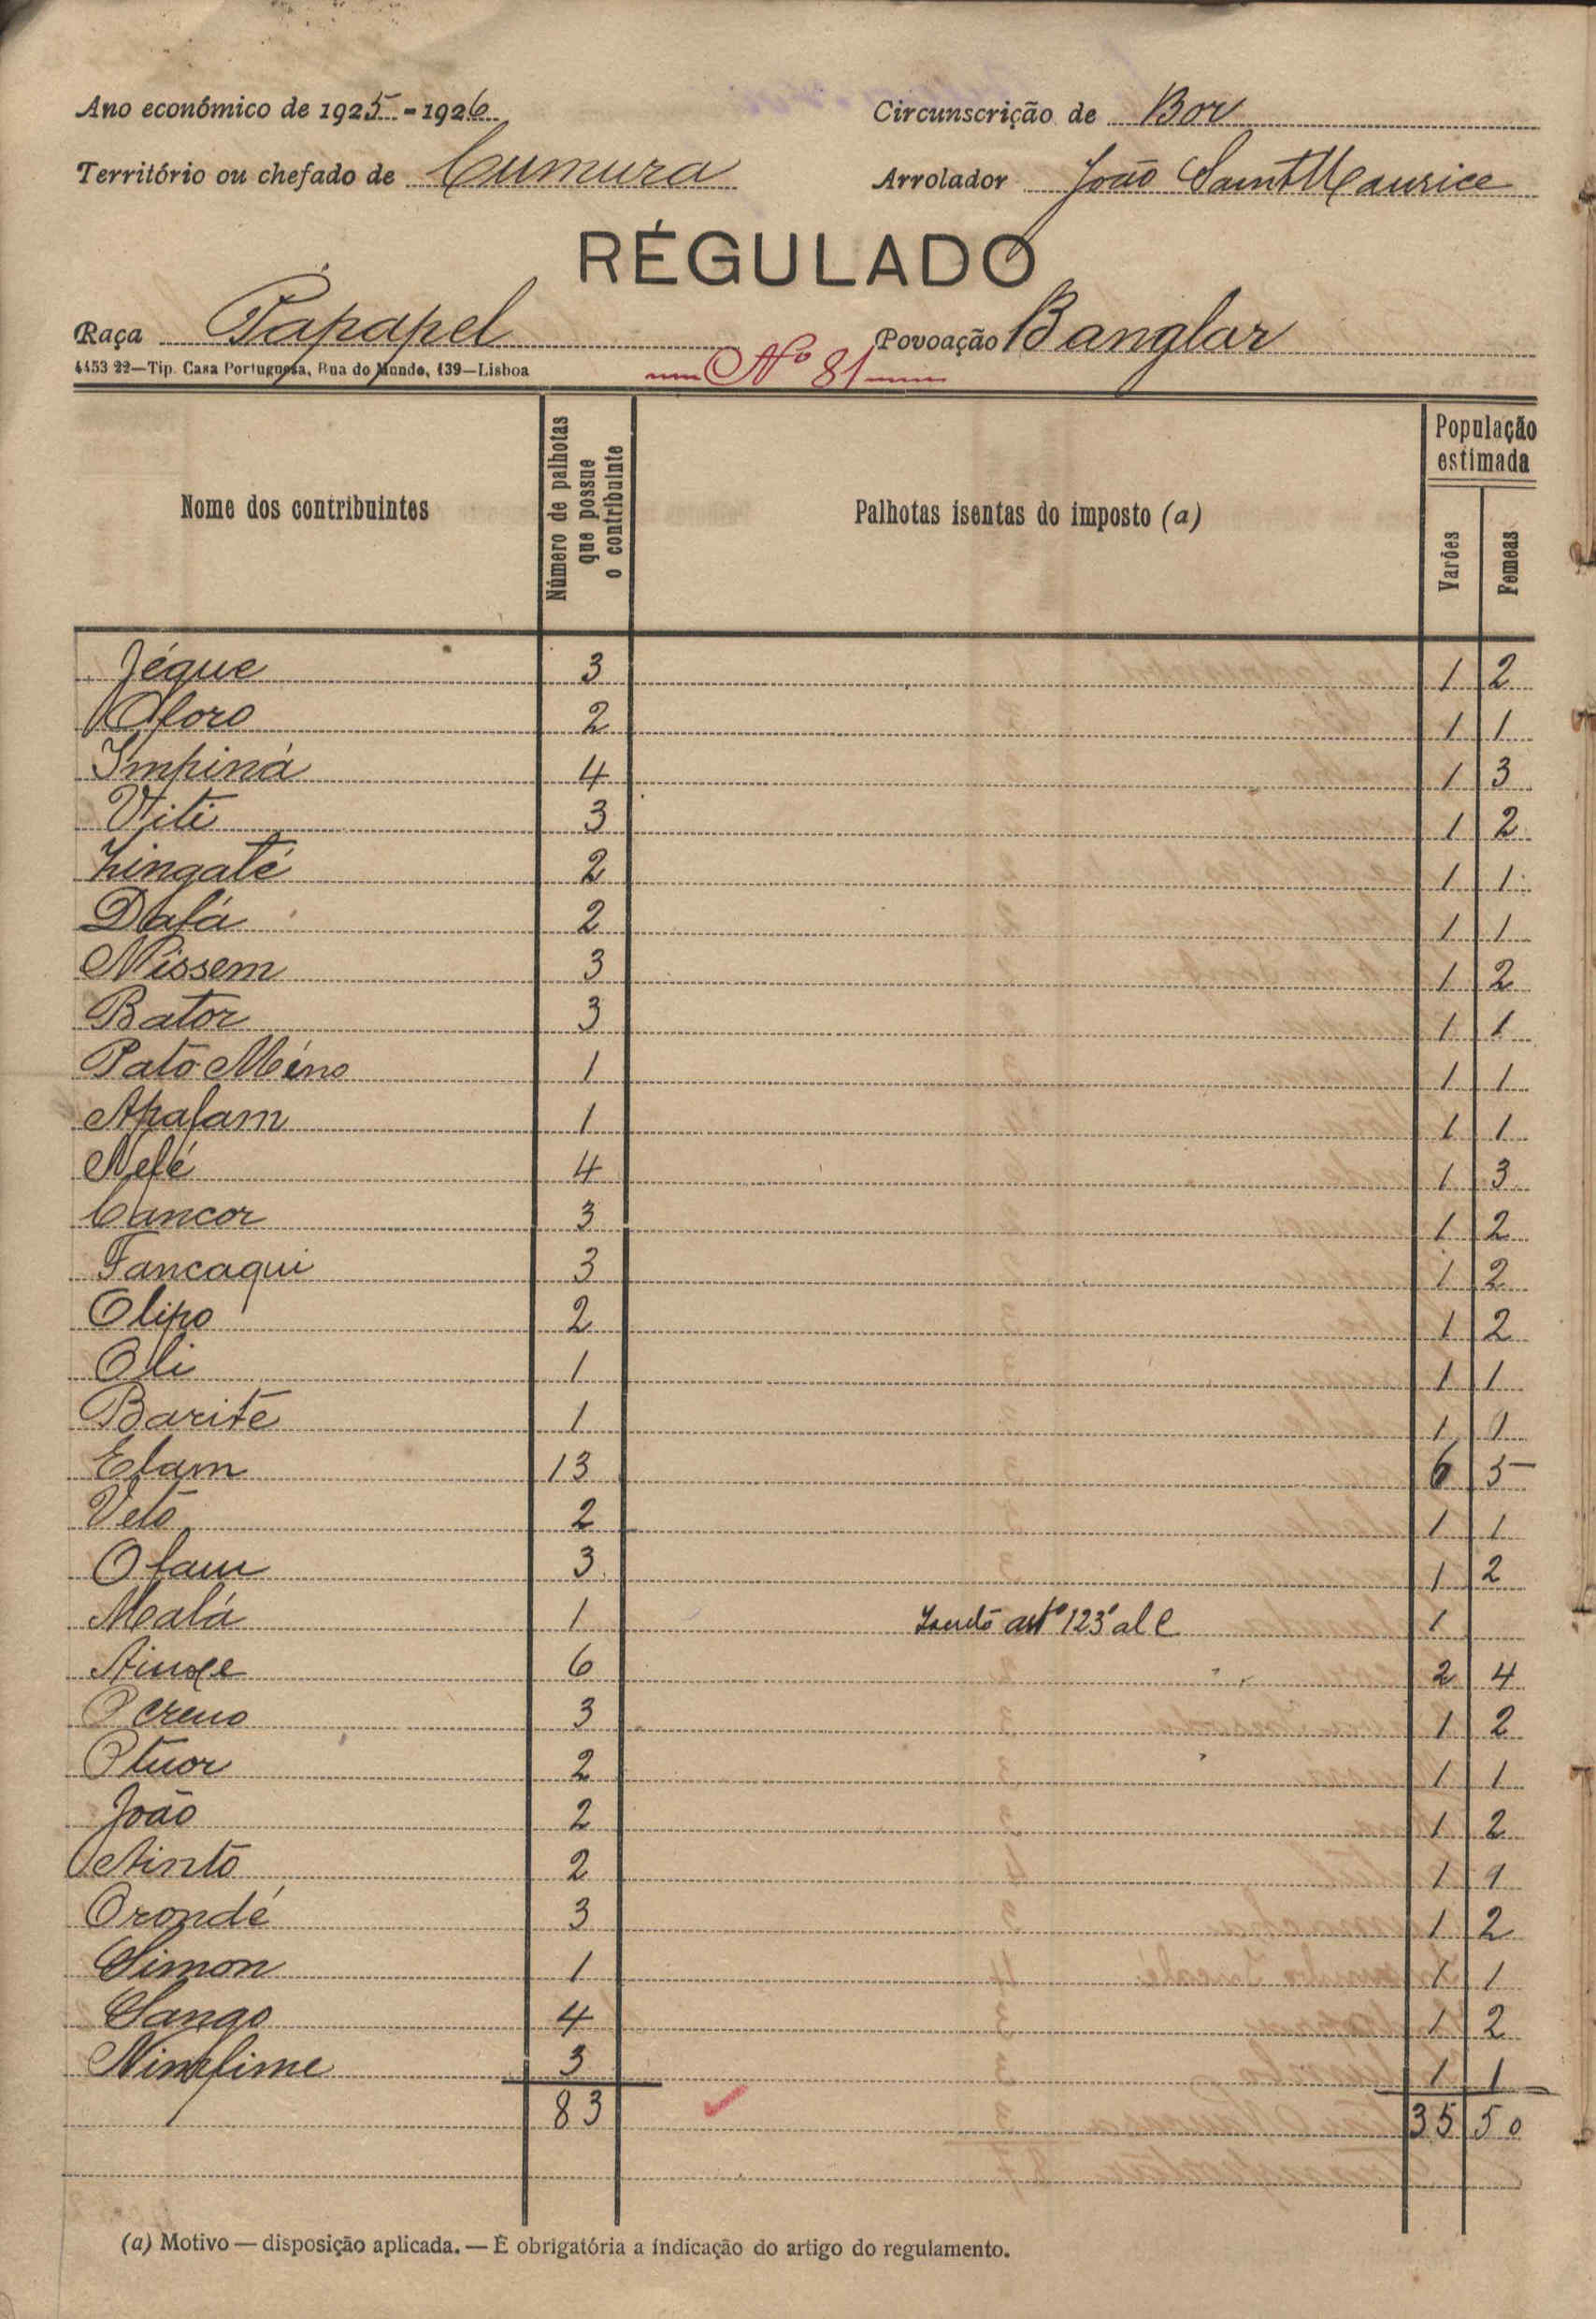 Ano económico de 1925 - 1926 Circunscrição de Bor
Território ou chefado de Cumura Arrolador João Saint Maurice
RÉGULADO
Raça Pápapel Povoação Banglar
4453 22—Tip. Casa Portuguesa, Rua do Mundo, 139—Lisboa Nº 81
Nome dos contribuintes Número de palhotas que possue o contribuinte Palhotas isentas do imposto (a) População estimada Varões Femeas
Jéque 3 1 2
Oforo 2 1 1
Impiná 4 1 3
Viti 3 1 2
Lingaté 2 1 1
Dafá 2 1 1
Nissem 3 1 2
Bator 3 1 1
Pato Méno 1 1 1
Apafam 1 1 1
Nefé 4 1 3
Cancor 3 1 2
Fancaqui 3 1 2
Olipo 2 1 2
Oli 1 1 1
Barité 1 1 1
Efam 13 6 5
Vetó 2 1 1
Ofam 3 1 2
Malá 1 Isento artº 123º al C 1
6 2 4
3 1 2
2 1 1
João 2 1 2
Aintó 2 1 1
Orondé 3 1 2
Simon 1 1 1
Sango 4 1 2
3 1 1
83 35 50
(a) Motivo — disposição aplicada. — É obrigatória a indicação do artigo do regulamento.